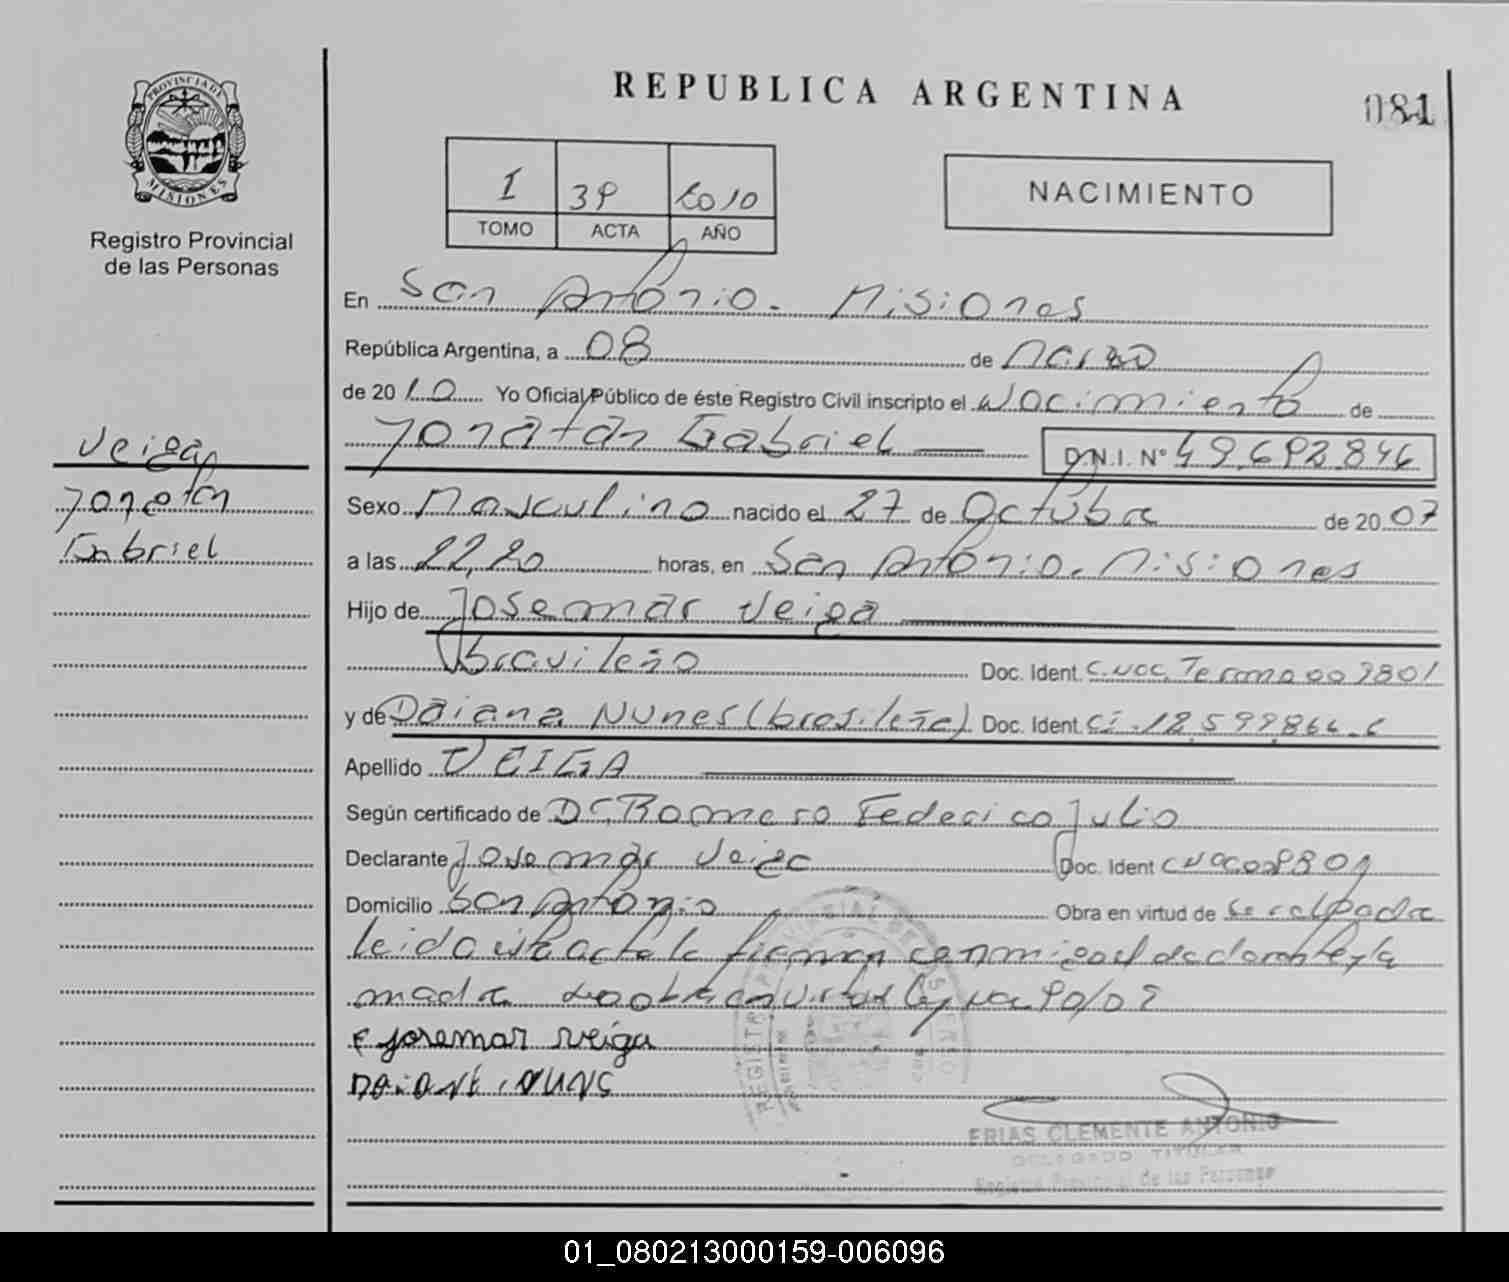 PROVINCIA DE
MISIONES
Registro Provincial
de las Personas
Veiga
Jonatan
Gabriel
REPUBLICA ARGENTINA
081
I 39 2010
TOMO ACTA AÑO
NACIMIENTO
En San Antonio - Misiones
República Argentina, a 08 de Marzo
de 2010 Yo Oficial Público de éste Registro Civil inscripto el Nacimiento de
Jonatan Gabriel D.N.I. Nº 49.692.846
Sexo Masculino nacido el 27 de Octubre de 2007
a las 22,20 horas, en San Antonio. Misiones
Hijo de Josemar Veiga
brasileño Doc. Ident.
y de Daiana Nunes (brasileña) Doc. Ident. Ci.
Apellido VEIGA
Según certificado de Dr. Romero Federico Julio
Declarante Josemar Veiga Doc. Ident
Domicilio San Antonio Obra en virtud de
leida acta la firman conmigo el declarante y la
madre
Josemar Veiga
DAIANE NUNS
FRIAS CLEMENTE ANTONIO
DELEGADO TITULAR
Registro Provincial de las Personas
01_080213000159-006096